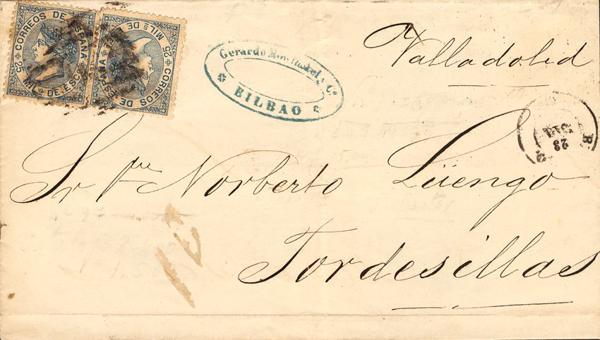 CORREOS DE ESPAÑA
25 MILS DE ESCO 25
CORREOS DE ESPAÑA
25 MILS DE
Gerardo & Cª
BILBAO
Valladolid
23
Sr Dn Norberto Lüengo
Tordesillas